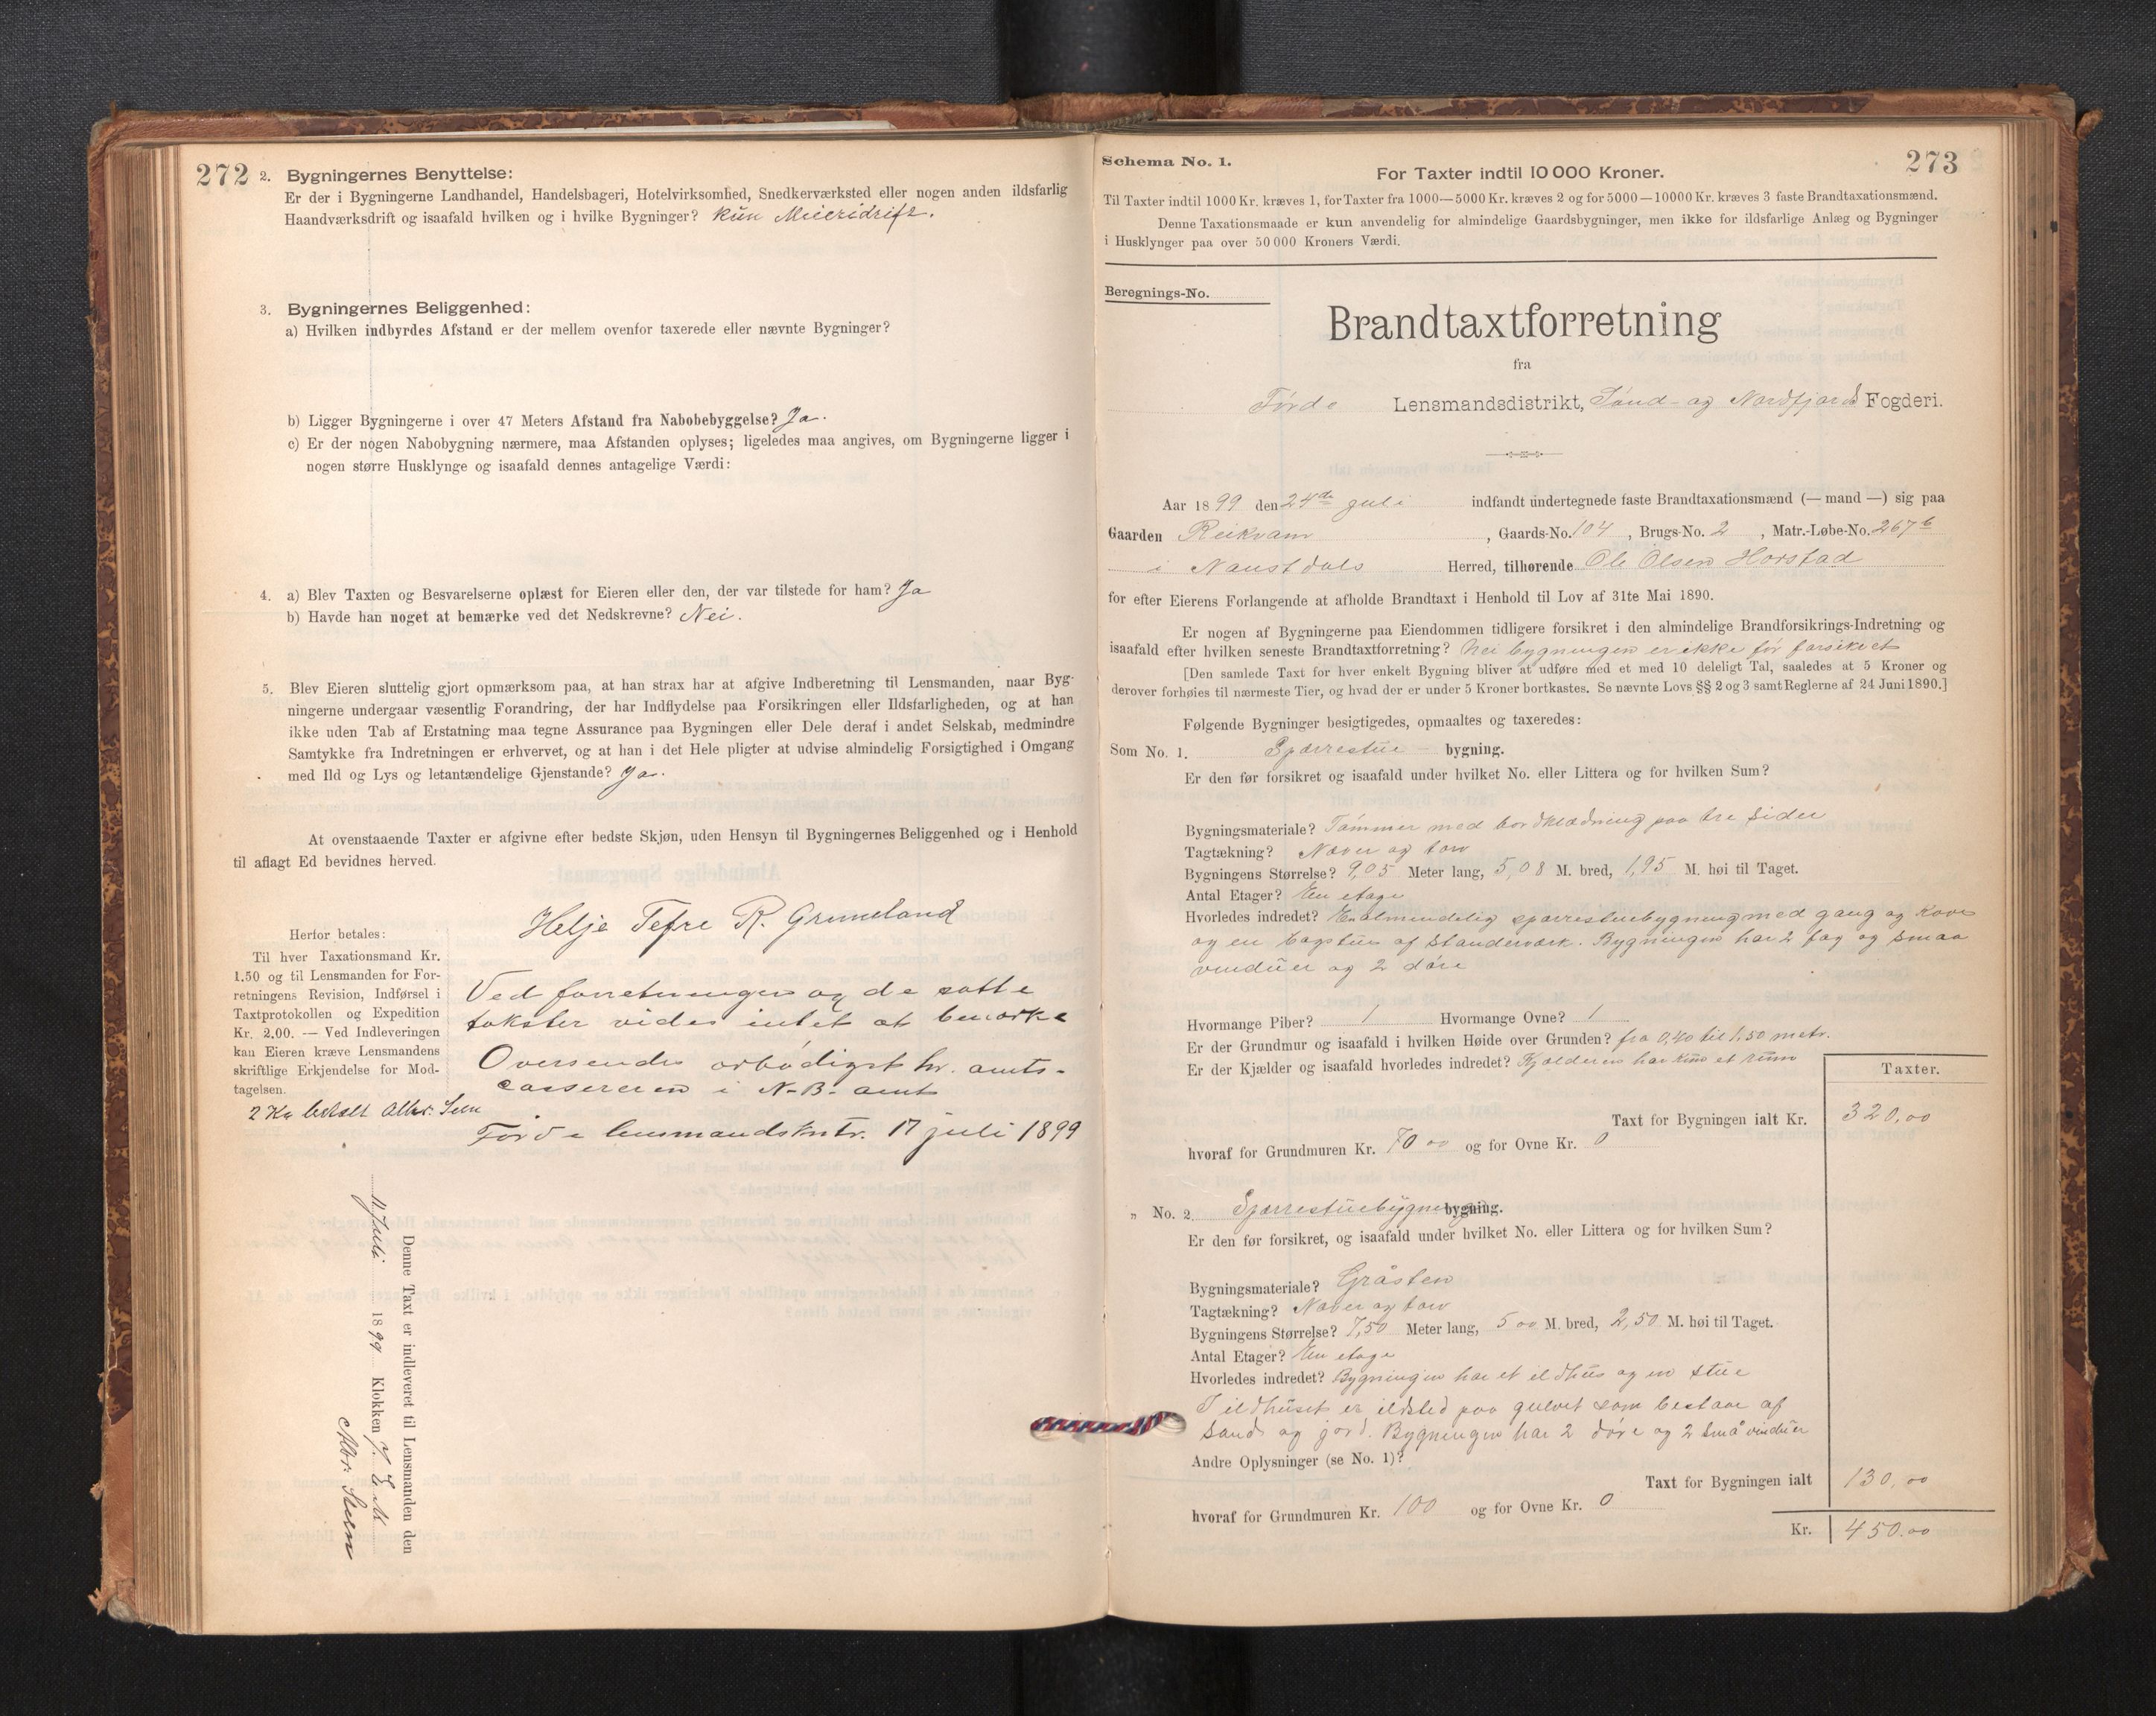 272
2. Bygningernes Benyttelse:
Er der i Bygningerne Landhandel, Handelsbageri, Hotelvirksomhed, Snedkerværksted eller nogen anden ildsfarlig
Haandværksdrift og isaafald hvilken og i hvilke Bygninger? kun Meieridrift.
3. Bygningernes Beliggenhed:
a) Hvilken indbyrdes Afstand er der mellem ovenfor taxerede eller nævnte Bygninger?
b) Ligger Bygningerne i over 47 Meters Afstand fra Nabobebyggelse? Ja.
c) Er der nogen Nabobygning nærmere, maa Afstanden oplyses; ligeledes maa angives, om Bygningerne ligger i
nogen større Husklynge og isaafald dennes antagelige Værdi:
4. a) Blev Taxten og Besvarelserne oplæst for Eieren eller den, der var tilstede for ham? Ja
b) Havde han noget at bemærke ved det Nedskrevne? Nei.
5. Blev Eieren sluttelig gjort opmærksom paa, at han strax har at afgive Indberetning til Lensmanden, naar Byg-
ningerne undergaar væsentlig Forandring, der har Indflydelse paa Forsikringen eller Ildsfarligheden, og at han
ikke uden Tab af Erstatning maa tegne Assurance paa Bygningen eller Dele deraf i andet Selskab, medmindre
Samtykke fra Indretningen er erhvervet, og at han i det Hele pligter at udvise almindelig Forsigtighed i Omgang
med Ild og Lys og letantændelige Gjenstande? Ja.
At ovenstaaende Taxter er afgivne efter bedste Skjøn, uden Hensyn til Bygningernes Beliggenhed og i Henhold
til aflagt Ed bevidnes herved.
Helje Tefre R. Grimeland
Herfor betales:
Til hver Taxationsmand Kr.
1.50 og til Lensmanden for For-
retningens Revision, Indførsel i
Taxtprotokollen og Expedition
Kr. 2.00. — Ved Indleveringen
kan Eieren kræve Lensmandens
skriftlige Erkjendelse for Mod-
tagelsen.
2 Kr betalt Albr. Seen
Ved forretningen og de satte
takster vides intet at bemærke
Oversendes ærbødigst hr. amts-
kassereren i N. B. amt
Førde lensmandskntr. 17 juli 1899
Denne Taxt er indleveret til Lensmanden den
11 Juli 1899 Klokken 7 E M
273
Schema No. 1.
For Taxter indtil 10 000 Kroner.
Til Taxter indtil 1000 Kr. kræves 1, for Taxter fra 1000—5000 Kr. kræves 2 og for 5000—10000 Kr. kræves 3 faste Brandtaxationsmænd.
Denne Taxationsmaade er kun anvendelig for almindelige Gaardsbygninger, men ikke for ildsfarlige Anlæg og Bygninger
i Husklynger paa over 50 000 Kroners Værdi.
Beregnings-No.
Brandtaxtforretning
fra
Førde Lensmandsdistrikt, Sønd- og Nordfjords Fogderi.
Aar 1899 den 24de juli indfandt undertegnede faste Brandtaxationsmænd (— mand —) sig paa
Gaarden Reikvam, Gaards-No. 104, Brugs-No. 2, Matr.-Løbe-No. 267b
i Naustdals Herred, tilhørende Ole Olsen Horstad
for efter Eierens Forlangende at afholde Brandtaxt i Henhold til Lov af 31te Mai 1890.
Er nogen af Bygningerne paa Eiendommen tidligere forsikret i den almindelige Brandforsikrings-Indretning og
isaafald efter hvilken seneste Brandtaxtforretning? Nei bygningen er ikke før forsikret
[Den samlede Taxt for hver enkelt Bygning bliver at udføre med et med 10 deleligt Tal, saaledes at 5 Kroner og
derover forhøies til nærmeste Tier, og hvad der er under 5 Kroner bortkastes. Se nævnte Lovs §§ 2 og 3 samt Reglerne af 24 Juni 1890.]
Følgende Bygninger besigtigedes, opmaaltes og taxeredes:
Som No. 1. Sparrestue- bygning.
Er den før forsikret og isaafald under hvilket No. eller Littera og for hvilken Sum?
Bygningsmateriale? Tømmer med bordklædning paa tre sider
Tagtækning? Næver og torv
Bygningens Størrelse? 9,05 Meter lang, 5,08 M. bred, 1,95 M. høi til Taget.
Antal Etager? En etage
Hvorledes indredet? En almindelig sparrestuebygning med gang og kove
og en bagstue af standerværk. Bygningen har 2 fag og smaa
vinduer og 2 døre
Hvormange Piber? 1 Hvormange Ovne? 1
Er der Grundmur og isaafald i hvilken Høide over Grunden? fra 0,40 til 1,50 metr.
Er der Kjælder og isaafald hvorledes indredet? Kjælderen har kun et rum
Taxter.
Taxt for Bygningen ialt Kr. 320,00
hvoraf for Grundmuren Kr. 70 00 og for Ovne Kr. 0
„ No. 2. Sparrestuebygning bygning.
Er den før forsikret, og isaafald under hvilket No. eller Littera og for hvilken Sum?
Bygningsmateriale? Gråsten
Tagtækning? Næver og torv
Bygningens Størrelse? 7,50 Meter lang, 5 00 M. bred, 2,50 M. høi til Taget.
Antal Etager? En etage
Hvorledes indredet? Bygningen har et ildhus og en stue
I ildhuset er ildsted paa gulvet som bestaar af
sand og jord. Bygningen har 2 døre og 2 små vinduer
Andre Oplysninger (se No. 1)?
Taxt for Bygningen ialt 130,00
hvoraf for Grundmuren Kr. 100 og for Ovne Kr. 0
Kr. 450.00